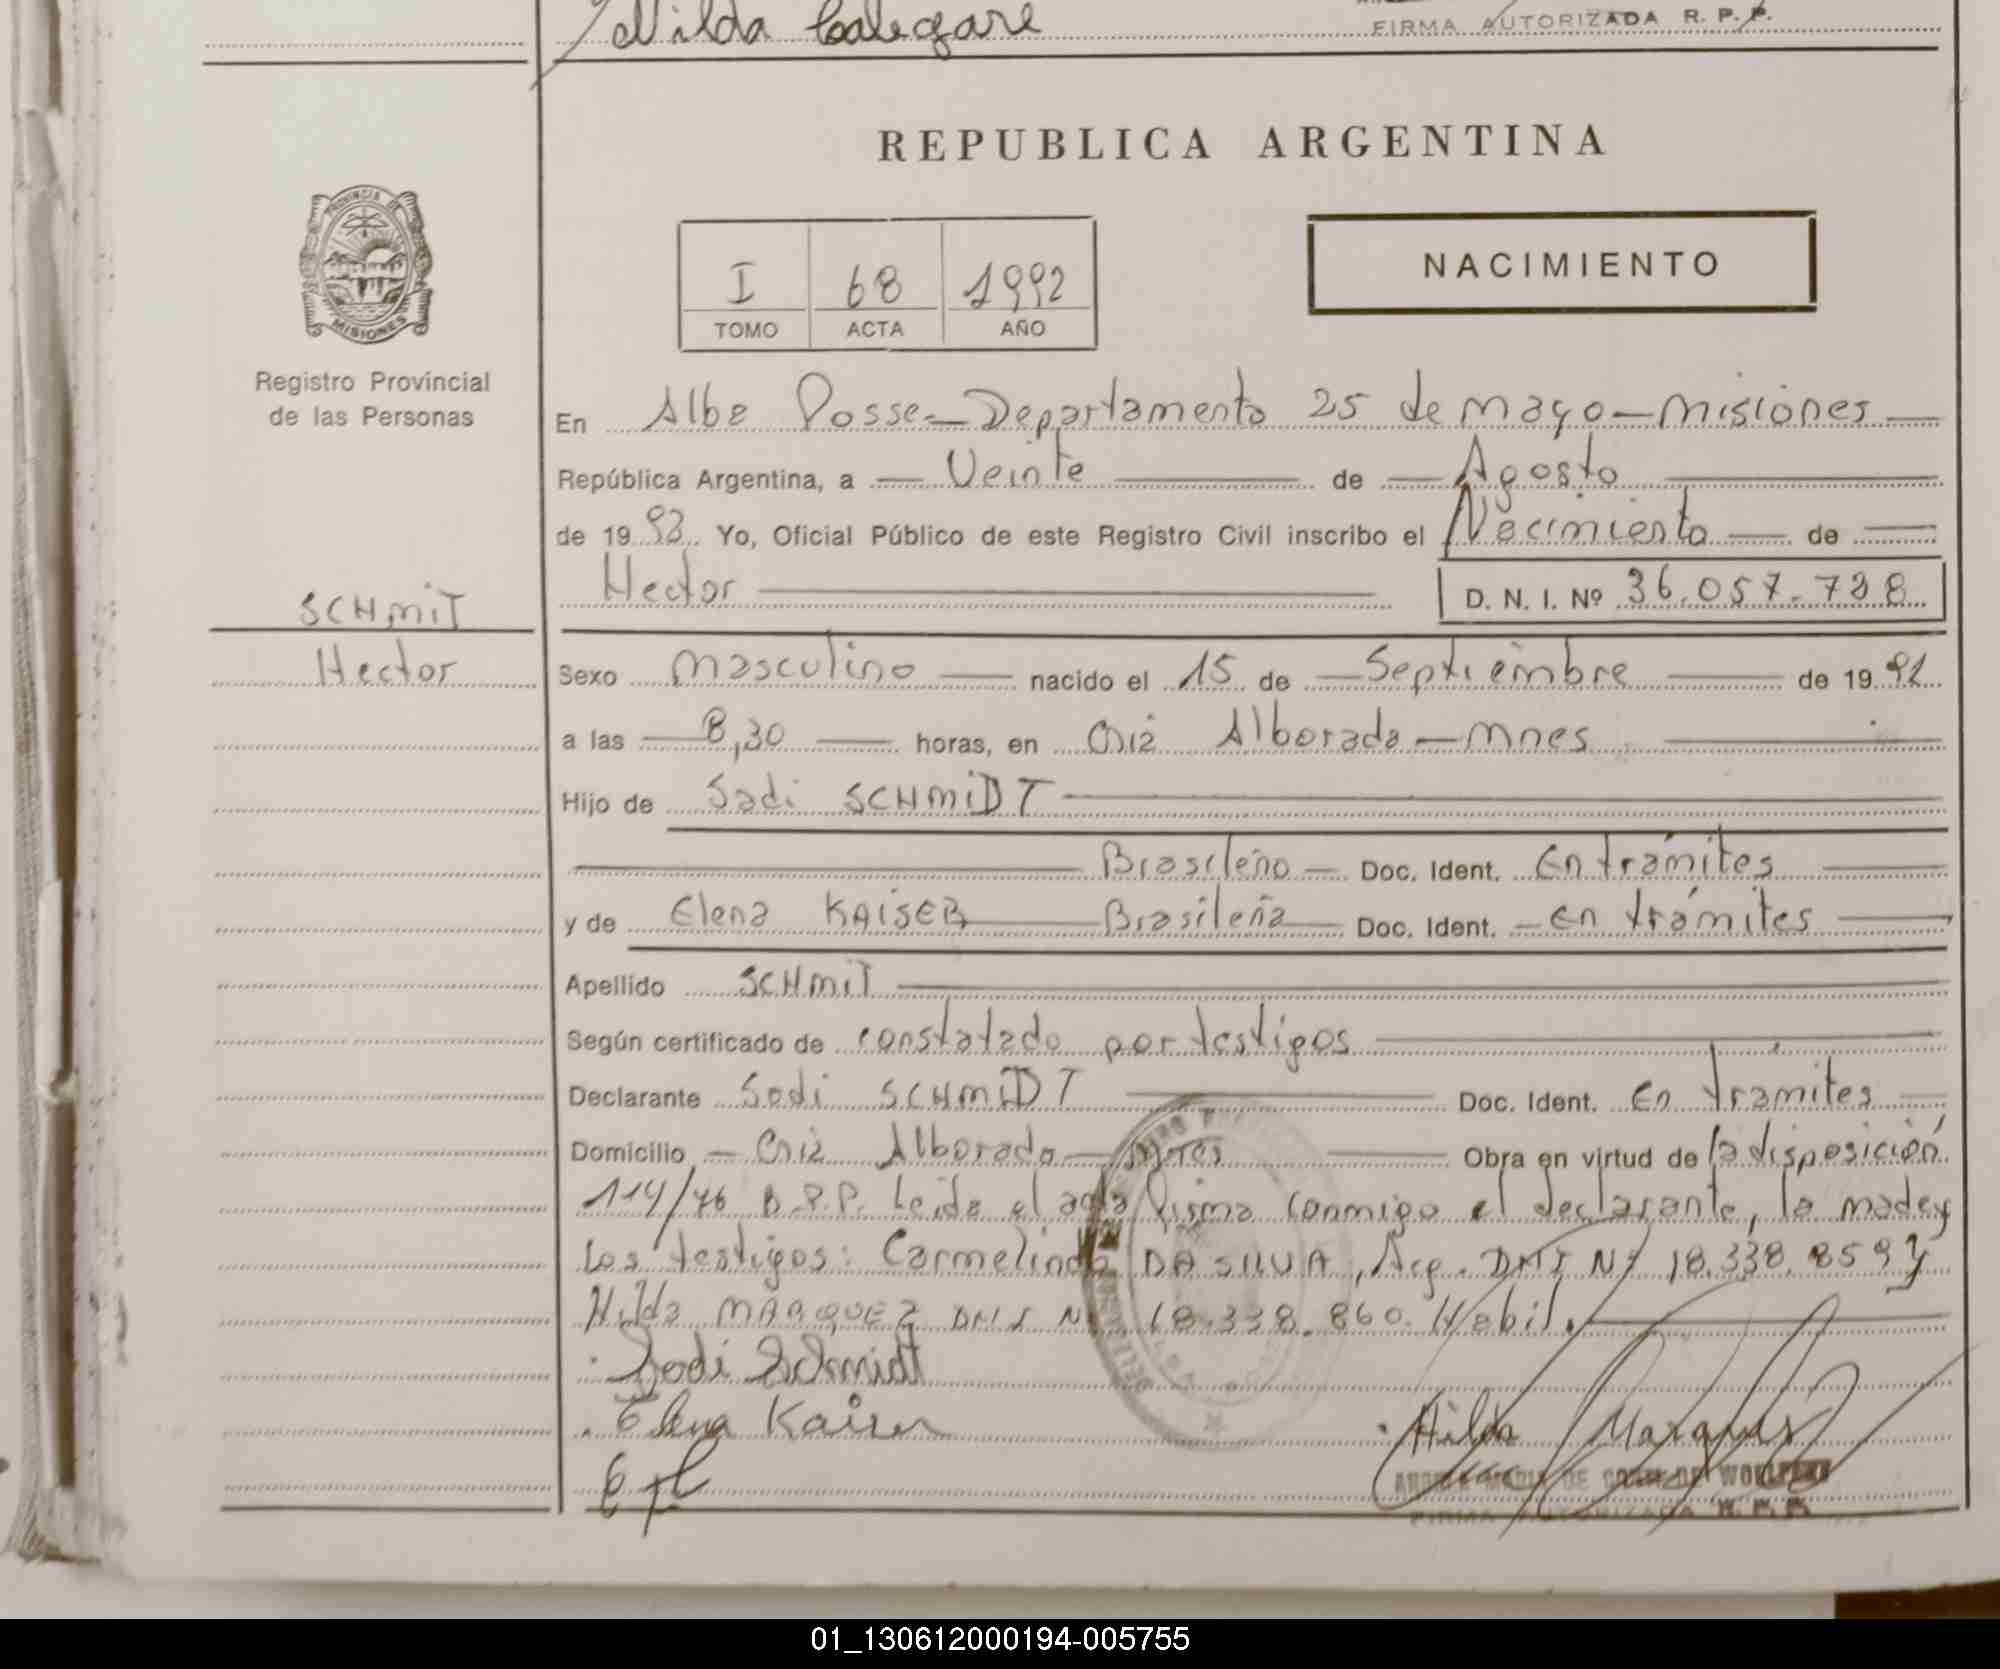 Nilda Calegare
FIRMA AUTORIZADA R. P. P.
REPUBLICA ARGENTINA
PROVINCIA DE
MISIONES
Registro Provincial
de las Personas
I 68 1992
TOMO ACTA AÑO
NACIMIENTO
En Alba Posse - Departamento 25 de mayo - Misiones
República Argentina, a Veinte de Agosto
de 1992 Yo, Oficial Público de este Registro Civil inscribo el Nacimiento de
Hector D. N. I. Nº 36.057.738
SCHMIT
Hector
Sexo Masculino nacido el 15 de Septiembre de 1991
a las 8,30 horas, en Alborada - Mnes
Hijo de Sadi SCHMIDT
Brasileño Doc. Ident. En trámites
y de Elena KAISER Brasileña Doc. Ident. en trámites
Apellido SCHMIT
Según certificado de constatado por testigos
Declarante Sodi SCHMIDT Doc. Ident. En trámites
Domicilio Alborada - Mnes Obra en virtud de la disposición
114/76 D.P.P. Leida el acta firma conmigo el declarante, la madre y
Los testigos: Carmelinda DA SILVA, Arg. DNI Nº 18.338.859 y
Hilda MARQUEZ DNI Nº 18.338.860. Habil.
Sodi Schmidt
Elena Kaiser
Hilda Marques
FIRMA AUTORIZADA R. P. P.
01_130612000194-005755